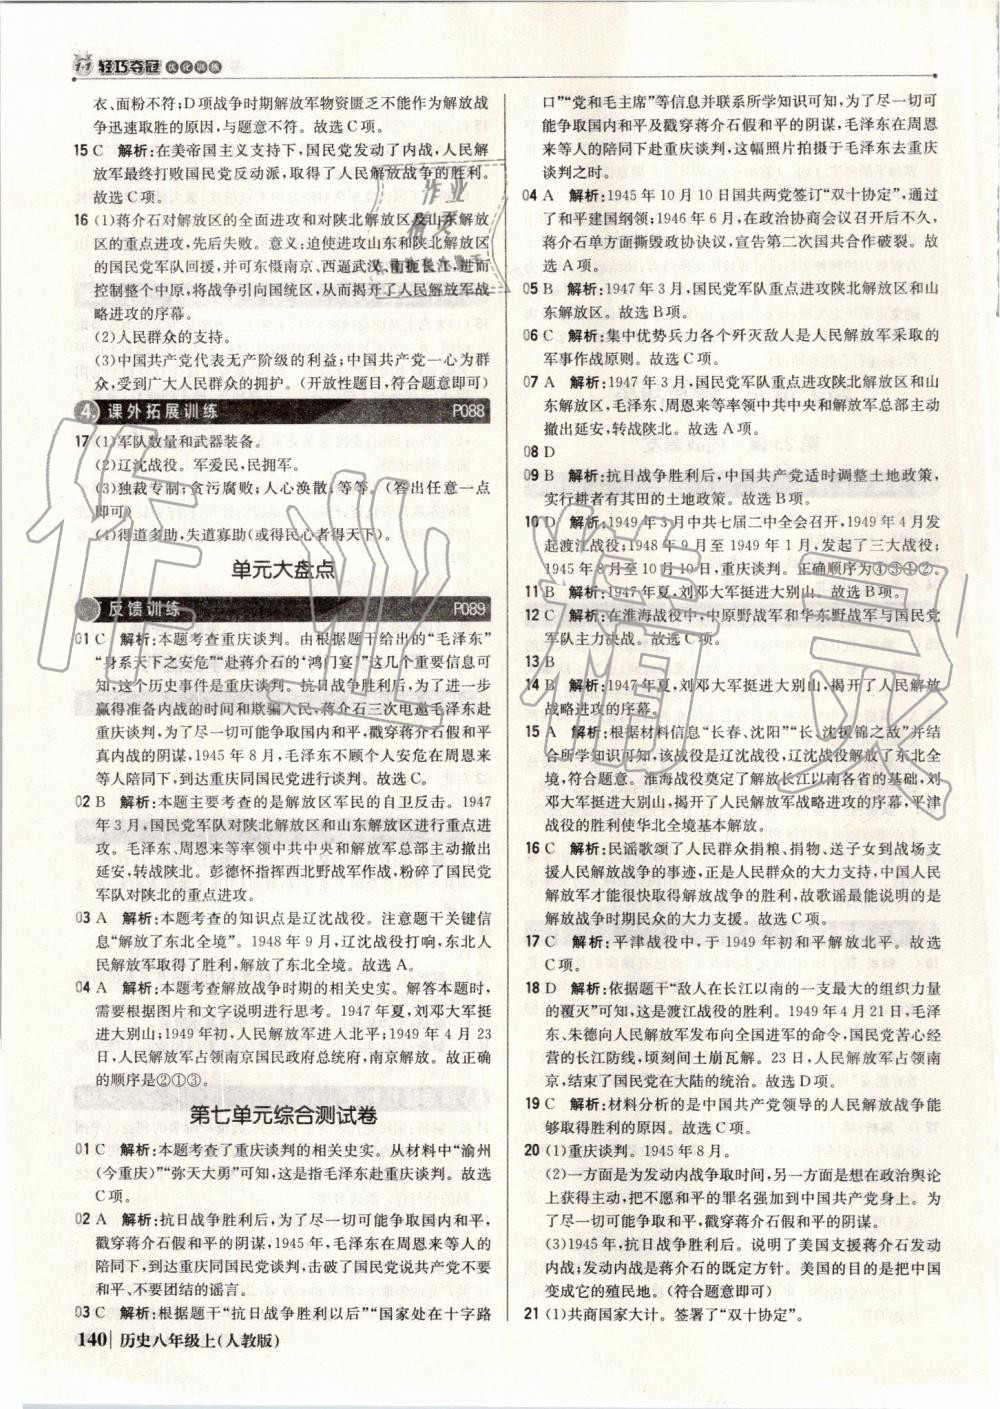 1+1 轻巧夺冠 优化训练
衣、面粉不符;D项战争时期解放军物资匮乏不能作为解放战
争迅速取胜的原因,与题意不符。故选C项。
15 C 解析:在美帝国主义支持下,国民党发动了内战,人民解
放军最终打败国民党反动派,取得了人民解放战争的胜利。
故选C项。
16 (1)蒋介石对解放区的全面进攻和对陕北解放区及山东解放
区的重点进攻,先后失败。意义:迫使进攻山东和陕北解放区
的国民党军队回援,并可东慑南京、西逼武汉、南扼长江,进而
控制整个中原,将战争引向国统区,从而揭开了人民解放军战
略进攻的序幕。
(2)人民群众的支持。
(3)中国共产党代表无产阶级的利益;中国共产党一心为群
众,受到广大人民群众的拥护。(开放性题目,符合题意即可)
4. 课外拓展训练 P088
17 (1)军队数量和武器装备。
(2)辽沈战役。军爱民,民拥军。
(3)独裁专制;贪污腐败;人心涣散;等等。(答出任意一点
即可)
(4)得道多助,失道寡助(或得民心者得天下)。
单元大盘点
反馈训练 P089
01 C 解析:本题考查重庆谈判。由根据题干给出的“毛泽东”
“身系天下之安危”“赴蒋介石的‘鸿门宴’”这几个重要信息可
知,这个历史事件是重庆谈判。抗日战争胜利后,为了进一步
赢得准备内战的时间和欺骗人民,蒋介石三次电邀毛泽东赴
重庆谈判,为了尽一切可能争取国内和平,戳穿蒋介石假和平
真内战的阴谋,1945年8月,毛泽东不顾个人安危在周恩来
等人陪同下,到达重庆同国民党进行谈判。故选C。
02 B 解析:本题主要考查的是解放区军民的自卫反击。1947
年3月,国民党军队对陕北解放区和山东解放区进行重点进
攻。毛泽东、周恩来等率领中共中央和解放军总部主动撤出
延安,转战陕北。彭德怀指挥西北野战军作战,粉碎了国民党
军队对陕北的重点进攻。
03 A 解析:本题考查的知识点是辽沈战役。注意题干关键信
息“解放了东北全境”。1948年9月,辽沈战役打响,东北人
民解放军取得了胜利,解放了东北全境。故选A。
04 A 解析:本题考查解放战争时期的相关史实。解答本题时,
需要根据图片和文字说明进行思考。1947年夏,刘邓大军挺
进大别山;1949年初,人民解放军进入北平;1949年4月23
日,人民解放军占领南京国民政府总统府,南京解放。故正确
的顺序是②①③。
第七单元综合测试卷
01 C 解析:本题考查了重庆谈判的相关史实。从材料中“渝州
(今重庆)”“弥天大勇”可知,这是指毛泽东赴重庆谈判。故选
C项。
02 A 解析:抗日战争胜利后,为了尽一切可能争取国内和平,
戳穿蒋介石假和平的阴谋,1945年8月,毛泽东在周恩来等人的
陪同下,到达重庆同国民党谈判,击破了国民党说共产党不要
和平、不要团结的谣言。
03 C 解析:根据题干“抗日战争胜利以后”“国家处在十字路
140 历史八年级上(人教版)
口”“党和毛主席”等信息并联系所学知识可知,为了尽一切可
能争取国内和平及戳穿蒋介石假和平的阴谋,毛泽东在周恩
来等人的陪同下赴重庆谈判,这幅照片拍摄于毛泽东去重庆
谈判之时。
04 A 解析:1945年10月10日国共两党签订“双十协定”,通过
了和平建国纲领;1946年6月,在政治协商会议召开后不久,
蒋介石单方面撕毁政协决议,宣告第二次国共合作破裂。故
选A项。
05 B 解析:1947年3月,国民党军队重点进攻陕北解放区和山
东解放区。故选B项。
06 C 解析:集中优势兵力各个歼灭敌人是人民解放军采取的
军事作战原则。故选C项。
07 A 解析:1947年3月,国民党军队重点进攻陕北解放区和山
东解放区,毛泽东、周恩来等率领中共中央和解放军总部主动
撤出延安,转战陕北。故选A项。
08 D
09 B 解析:抗日战争胜利后,中国共产党适时调整土地政策,
实行耕者有其田的土地政策。故选B项。
10 D 解析:1949年3月中共七届二中全会召开,1949年4月发
起渡江战役;1948年9月至1949年1月,发起了三大战役;
1945年8月至10月10日,重庆谈判。正确顺序为④③①②。
11 B 解析:1947年夏,刘邓大军挺进大别山。故选B项。
12 C 解析:在淮海战役中,中原野战军和华东野战军与国民党
军队主力决战。故选C项。
13 B
14 B 解析:1947年夏,刘邓大军挺进大别山,揭开了人民解放军
战略进攻的序幕。
15 A 解析:根据材料信息“长春、沈阳”“长、沈援锦之敌”并结
合所学知识可知,该战役是辽沈战役,辽沈战役解放了东北全
境,符合题意。淮海战役奠定了解放长江以南各省的基础,刘
邓大军挺进大别山,揭开了人民解放军战略进攻的序幕,平津
战役的胜利使华北全境基本解放。
16 C 解析:民谣歌颂了人民群众捐粮、捐物、送子女到战场支
援人民解放战争的事迹,正是人民群众的大力支持,中国人民
解放军才能很快取得解放战争的胜利,故歌谣最能说明的是
解放战争时期民众的大力支援。故选C项。
17 C 解析:平津战役中,于1949年初和平解放北平。故选
C项。
18 D 解析:依据题干“敌人在长江以南的一支最大的组织力量
的覆灭”可知,这是渡江战役的胜利。1949年4月21日,毛泽
东、朱德向人民解放军发布向全国进军的命令,国民党苦心经
营的长江防线,顷刻间土崩瓦解。23日,人民解放军占领南
京,结束了国民党在大陆的统治。故选D项。
19 C 解析:材料分析的是中国共产党领导的人民解放战争能
够取得胜利的原因。故选C项。
20 (1)重庆谈判。1945年8月。
(2)一方面是为发动内战争取时间,另一方面是想在政治舆论
上获得主动,把不愿和平的罪名强加到中国共产党身上。为
了尽一切可能争取和平,戳穿蒋介石假和平的阴谋。
(3)1945年,抗日战争胜利后。说明了美国支援蒋介石发动
内战;发动内战是蒋介石的既定方针。美国的目的是把中国
变成它的殖民地。(符合题意即可)
21 (1)共商国家大计。签署了“双十协定”。
作业精灵